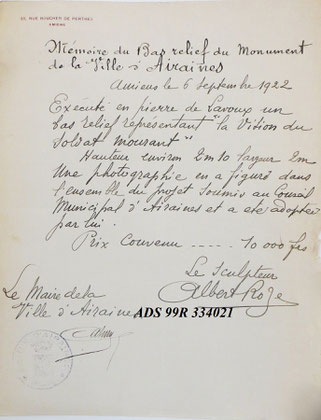 55, RUE BOUCHER DE PERTHES
AMIENS
Mémoire du Bas relief du Monument
de la Ville d'Airaines
Amiens le 6 Septembre 1922
Exécuté en pierre de Lavoux un
bas relief représentant "la Vision du
Soldat mourant"
Hauteur environ 2m10 largeur 2m
Une photographie en a figuré dans
l'ensemble du projet soumis au Conseil
Municipal d'Airaines et a été adoptée
par lui.
Prix Convenu ----- 10 000 frs
Le Sculpteur
Albert Roze
Le Maire de la
Ville d'Airaines
ADS 99R 334021